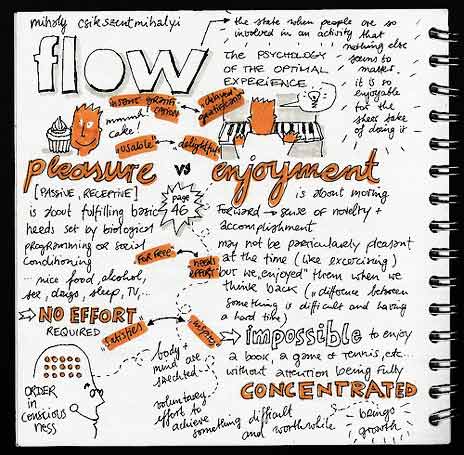 mihaly csikszentmihalyi
flow
→ the state when people are so
involved in an activity that
nothing else
seems to
matter.
it is so
enjoyable
for the
sheer sake
of doing it
THE PSYCHOLOGY
OF THE OPTIMAL
EXPERIENCE
instant gratification
delayed gratification
mmm!
cake!
"usable"
delightful
pleasure vs enjoyment
[PASSIVE, RECEPTIVE]
is about fulfilling basic
needs set by biological
programming or social
conditioning
... nice food, alcohol,
sex, drugs, sleep, TV,...
→ NO EFFORT
REQUIRED
page
46
FOR FREE
needs
EFFORT
"satisfies"
is about moving
forward → sense of novelty +
accomplishment
may not be particularly pleasant
at the time (like excercising)
but we „enjoyed" them when we
think back („difference between
something is difficult and having
a hard time)
→ impossible to enjoy
a book, a game of tennis, etc...
without attention being fully
CONCENTRATED
ORDER
in
conscious
ness
body +
mind are
stretched
voluntary
effort to
achieve
something difficult
and worthwhile
brings
growth